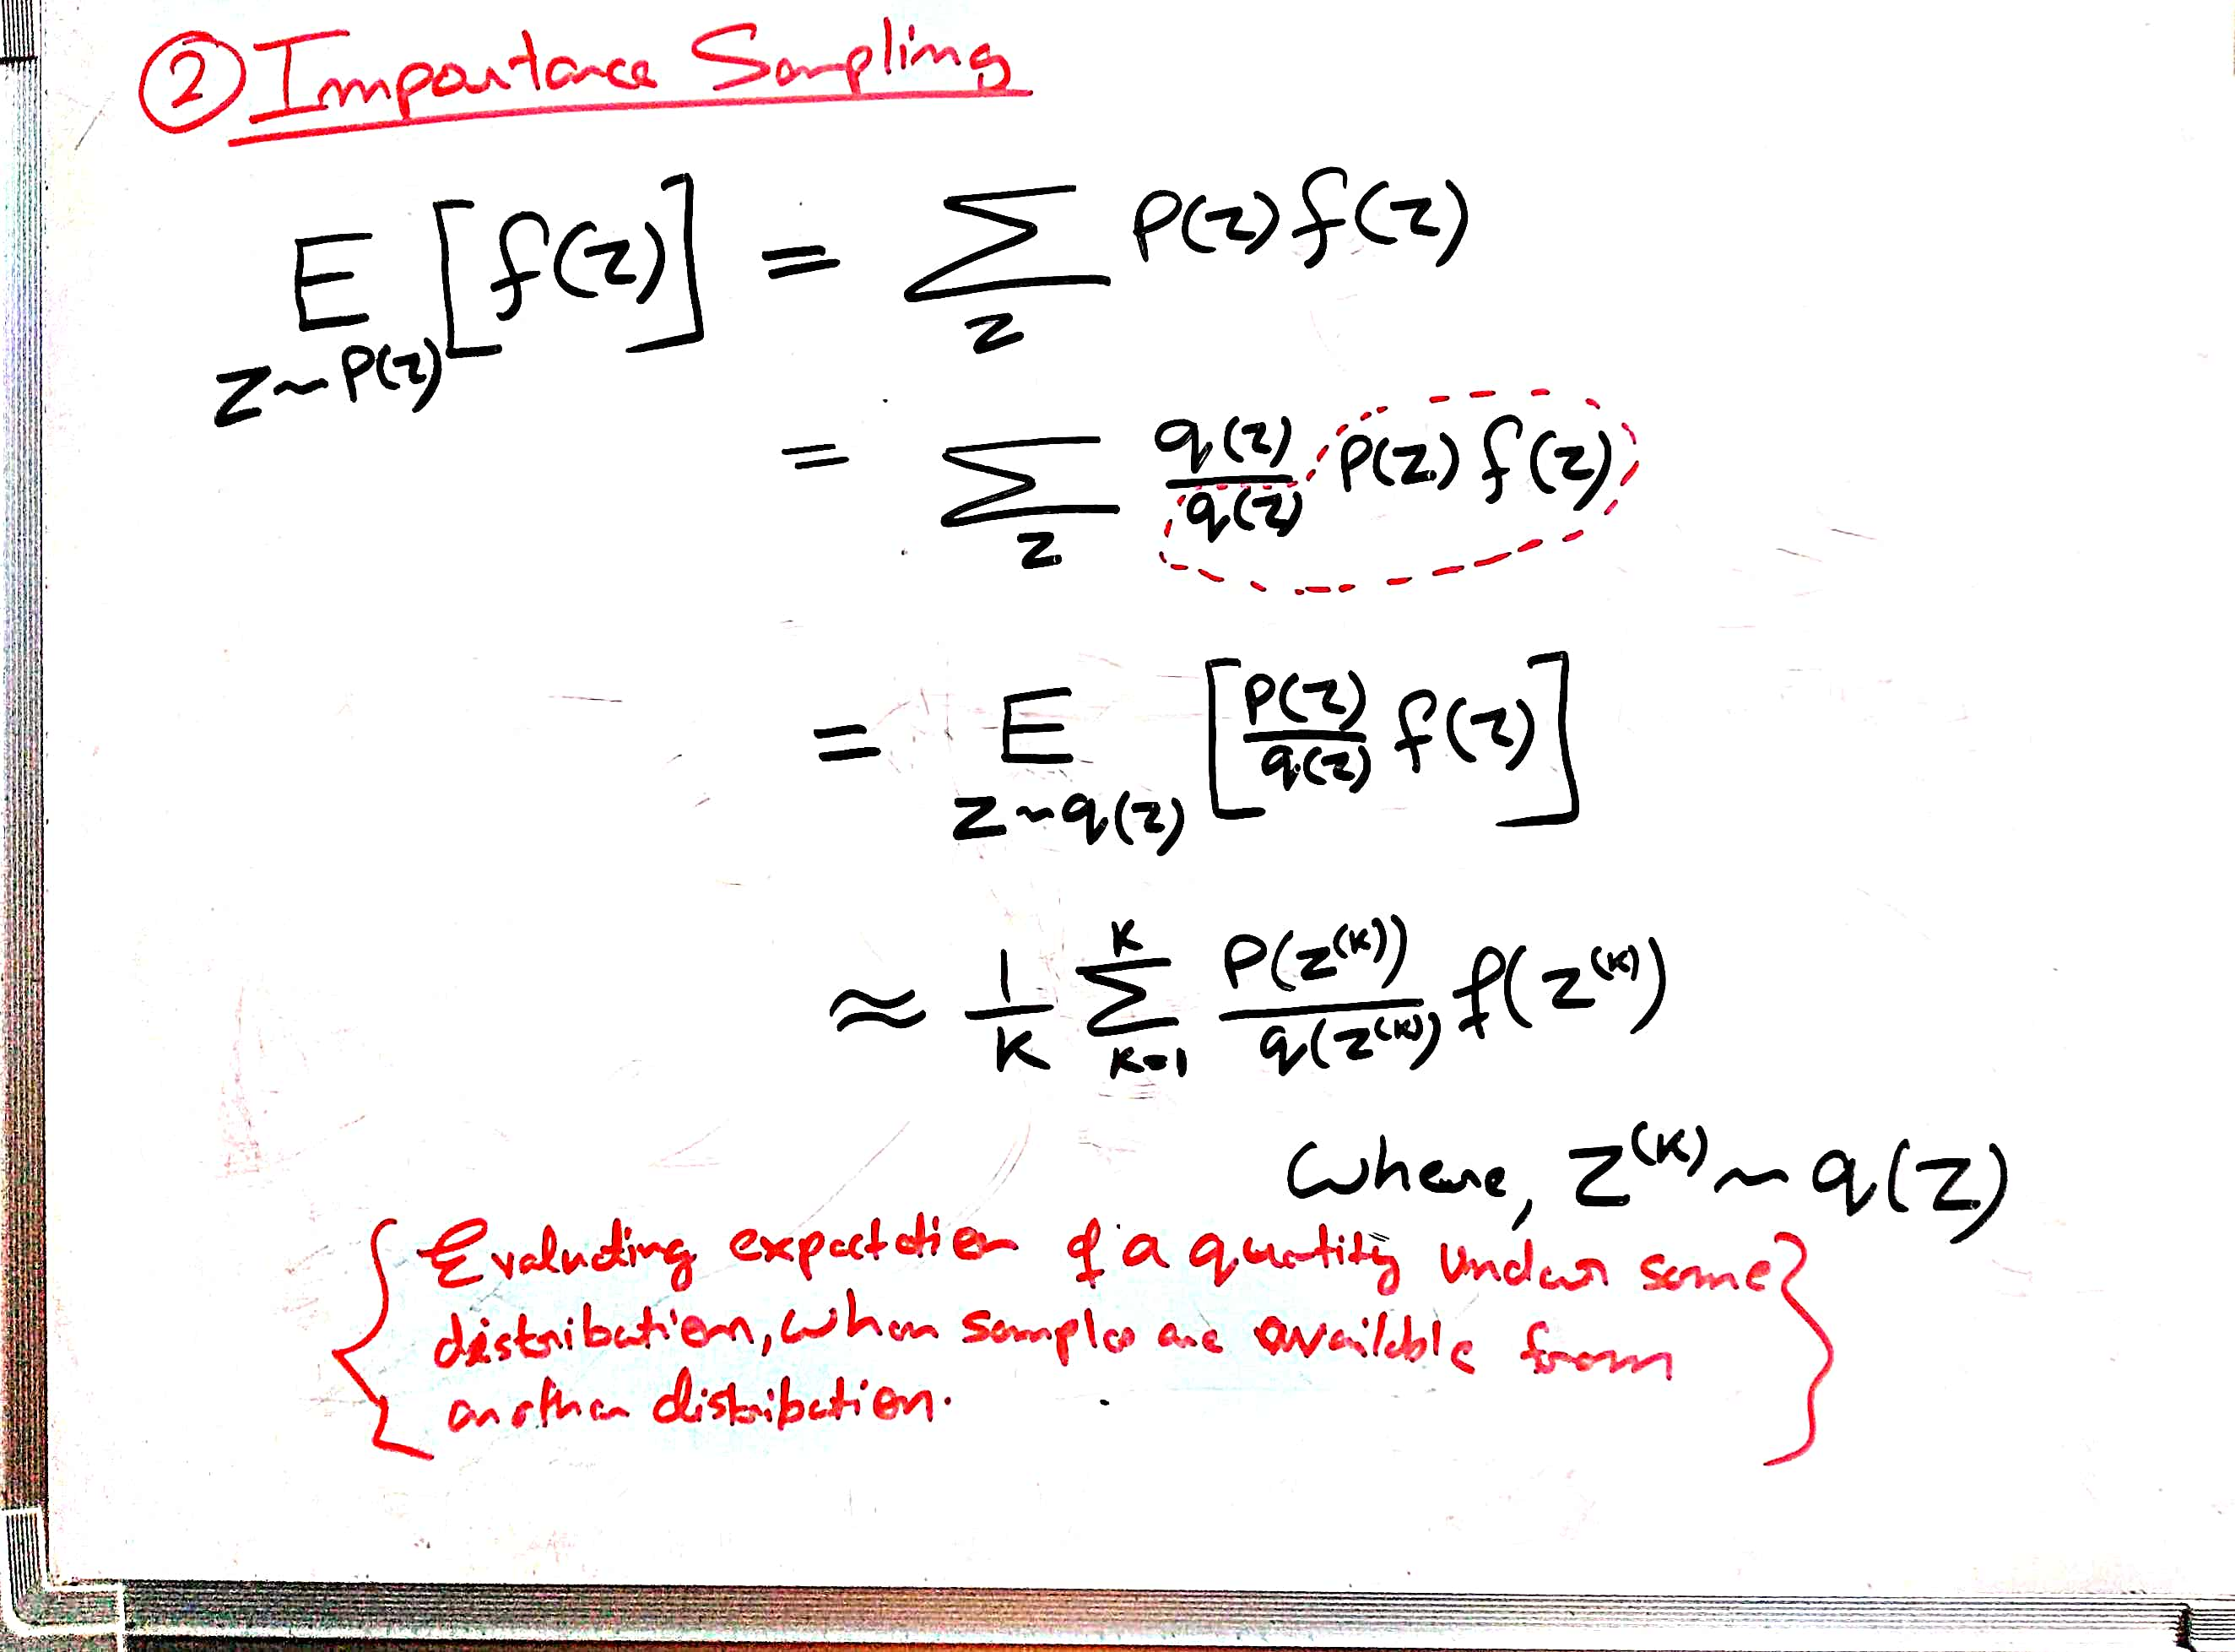 ② Importance Sampling
E_{z∼p(z)} [f(z)] = Σ_z p(z) f(z)
= Σ_z q(z)/q(z) p(z) f(z)
= E_{z∼q(z)} [p(z)/q(z) f(z)]
≈ 1/K Σ_{k=1}^{K} p(z^{(k)})/q(z^{(k)}) f(z^{(k)})
Where, z^{(k)} ∼ q(z)
{Evaluating expectation of a quantity under some
distribution, when samples are available from
another distribution.}